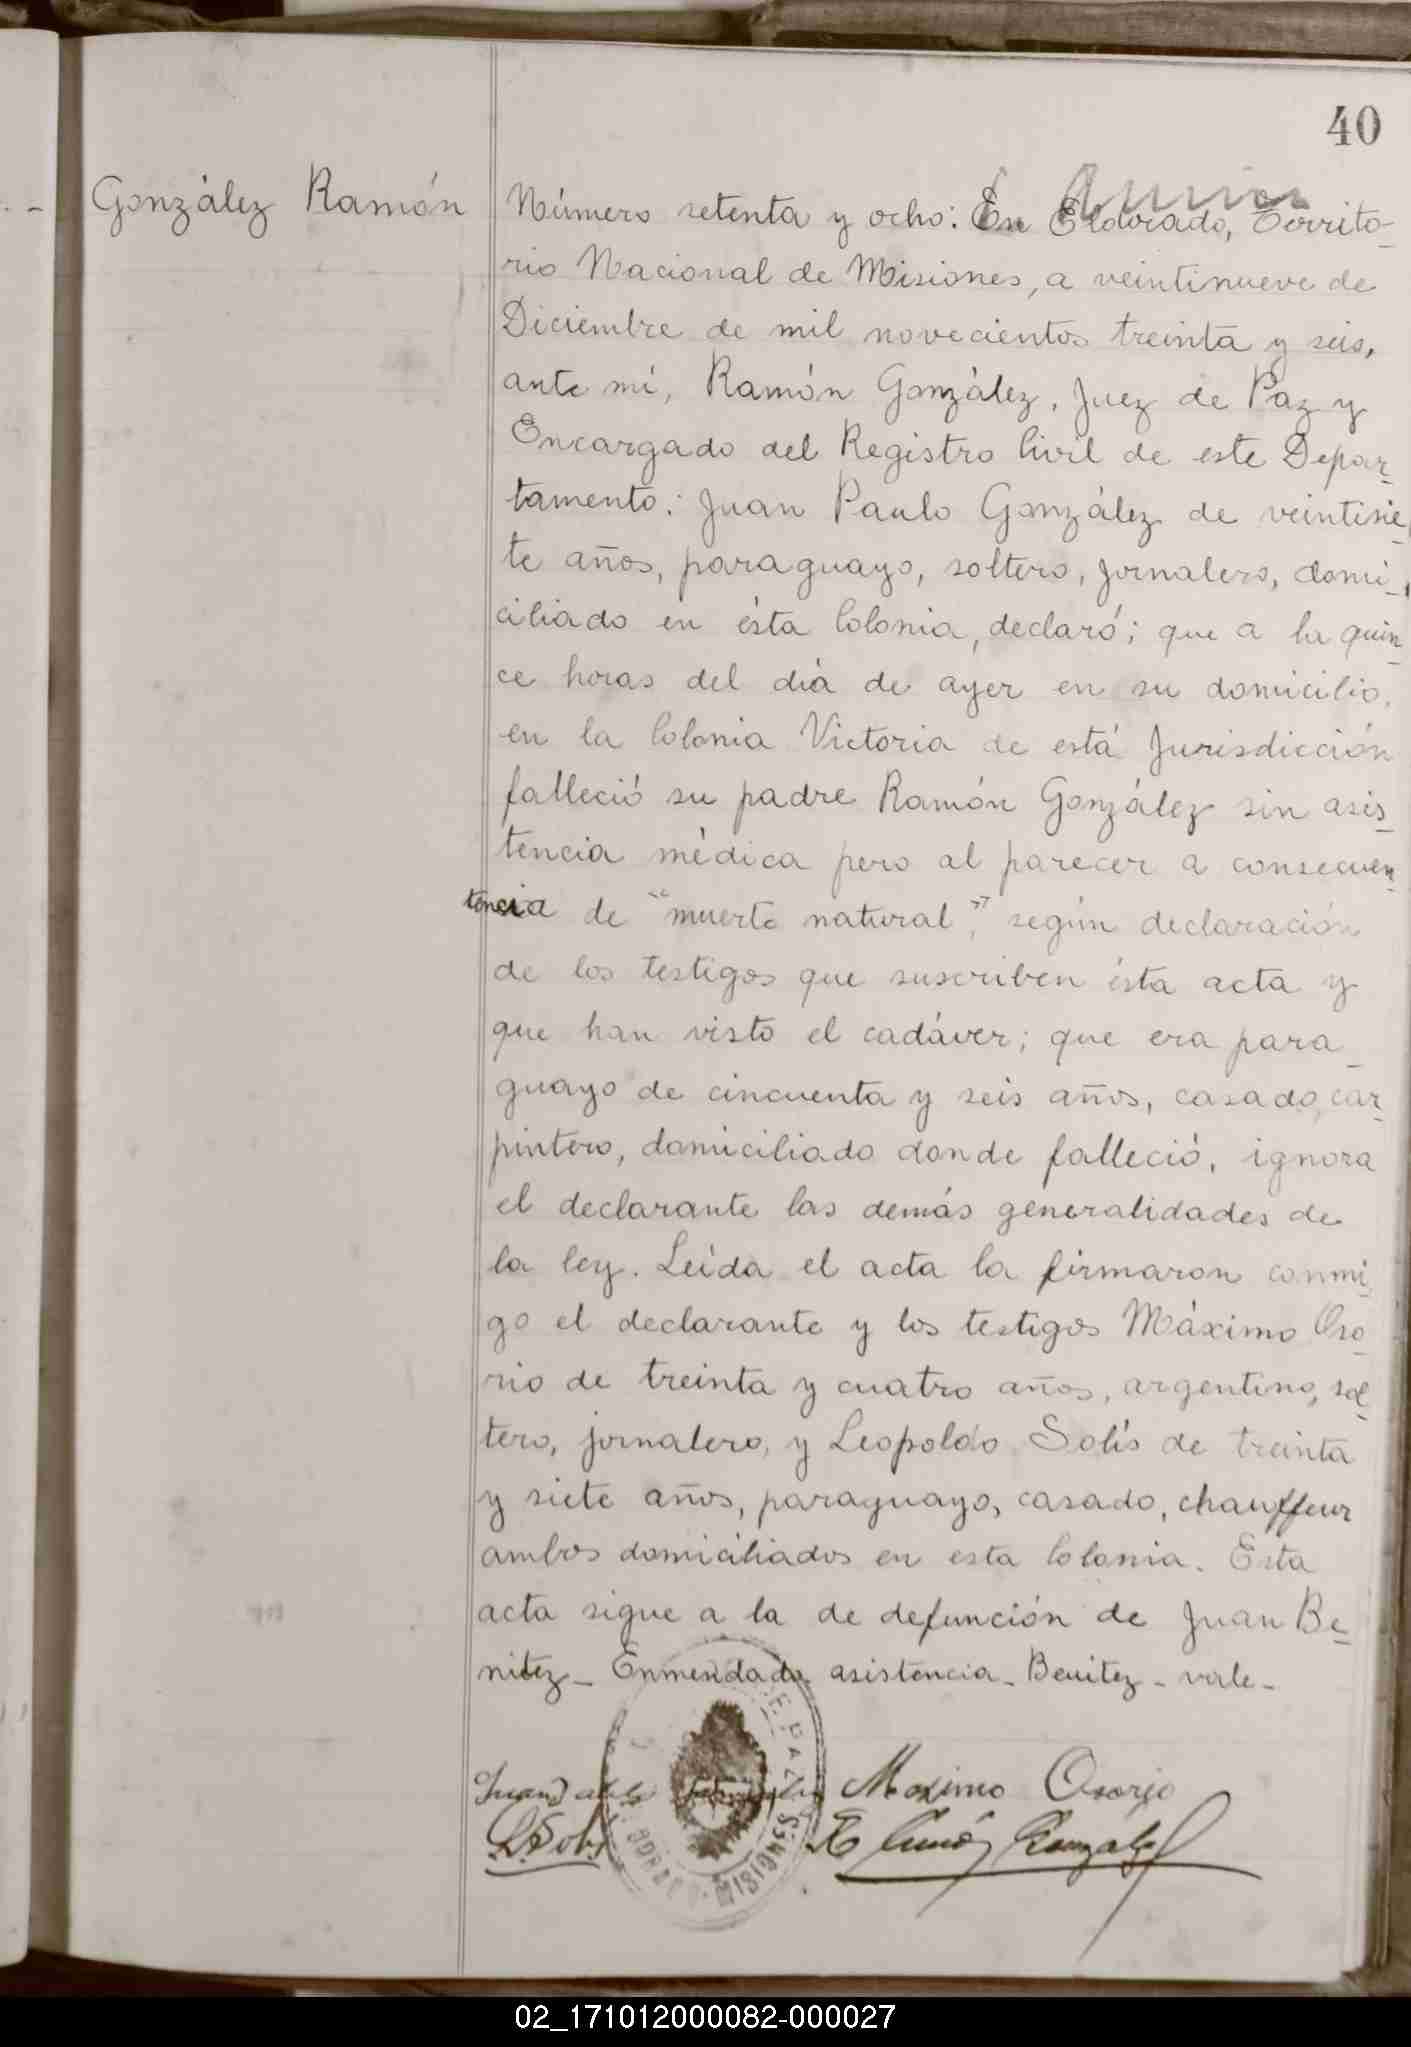 40
González Ramón
Número setenta y ocho: En Eldorado, Territo-
rio Nacional de Misiones, a veintinueve de
Diciembre de mil novecientos treinta y seis,
ante mí, Ramón González, Juez de Paz y
Encargado del Registro Civil de este Depar-
tamento: Juan Paulo González de veintisie-
te años, paraguayo, soltero, jornalero, domi-
ciliado en ésta Colonia, declaró; que a la quin-
ce horas del día de ayer en su domicilio,
en la Colonia Victoria de está Jurisdicción
falleció su padre Ramón González sin asis-
tencia médica pero al parecer a consecuen-
tencia de "muerte natural," según declaración
de los testigos que suscriben ésta acta y
que han visto el cadáver; que era para-
guayo de cincuenta y seis años, casado, car-
pintero, domiciliado donde falleció, ignora
el declarante las demás generalidades de
la ley. Leída el acta la firmaron conmi-
go el declarante y los testigos Máximo Oso-
rio de treinta y cuatro años, argentino, sol-
tero, jornalero, y Leopoldo Solís de treinta
y siete años, paraguayo, casado, chauffeur
ambos domiciliados en esta Colonia. Esta
acta sigue a la de defunción de Juan Be-
nitez - Enmendado asistencia - Benitez - vale -
Maximo Osorio
Ramón González
DE PAZ
MISIONES
02_171012000082-000027